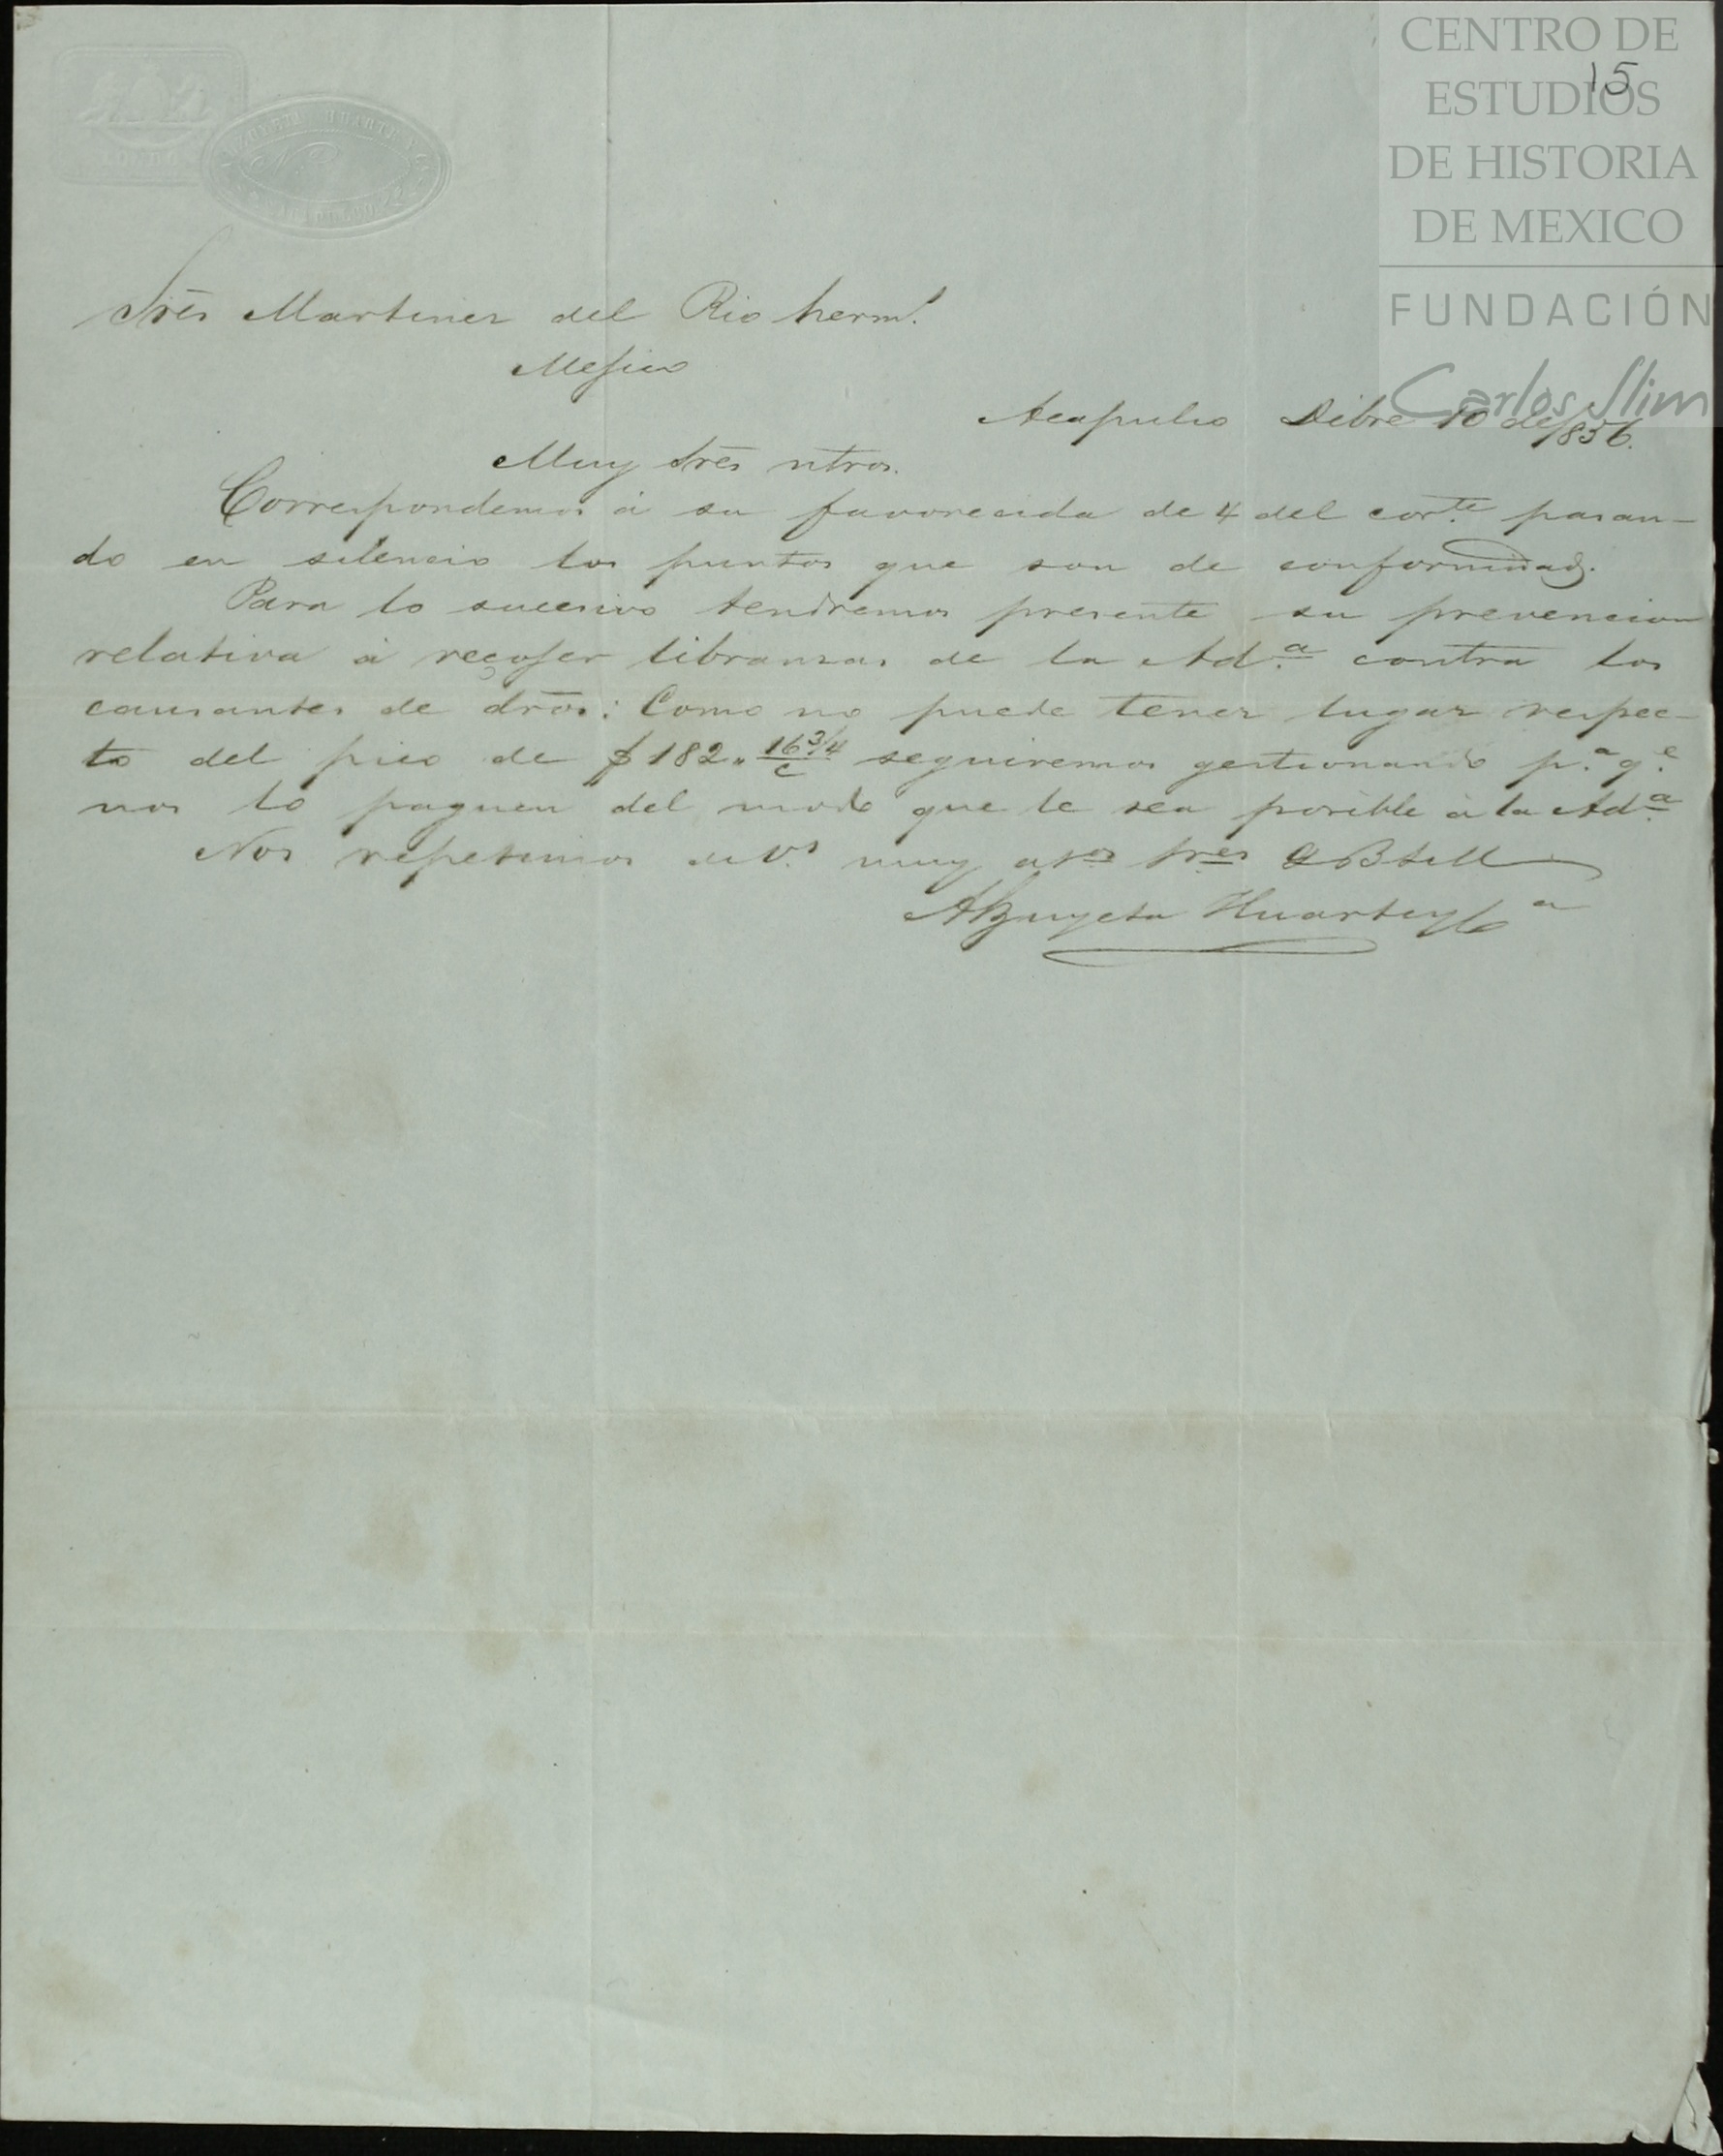 CENTRO DE
ESTUDIOS
DE HISTORIA
DE MEXICO
FUNDACIÓN
Carlos Slim
15
HUARTE Y Cª
Sres Martinez del Rio herms.
Mejico
Acapulco Dibre 10 de 1856.
Muy Sres ntros.
Correspondemos á su favorecida de 4 del corte. pasan-
do en silencio los puntos que son de conformidad.
Para lo sucesivo tendremos presente su prevencion
relativa á recojer libranzas de la Ad.ª contra los
causantes de dros: Como no puede tener lugar respec-
to del pico de $182„ 16 3/4 c seguiremos gestionando p.ª q.e
nos lo paguen del modo que le sea posible á la Ad.ª
Nos repetimos de V.s muy atos Sres Q B S M
Alzuyeta Huarte y Cª